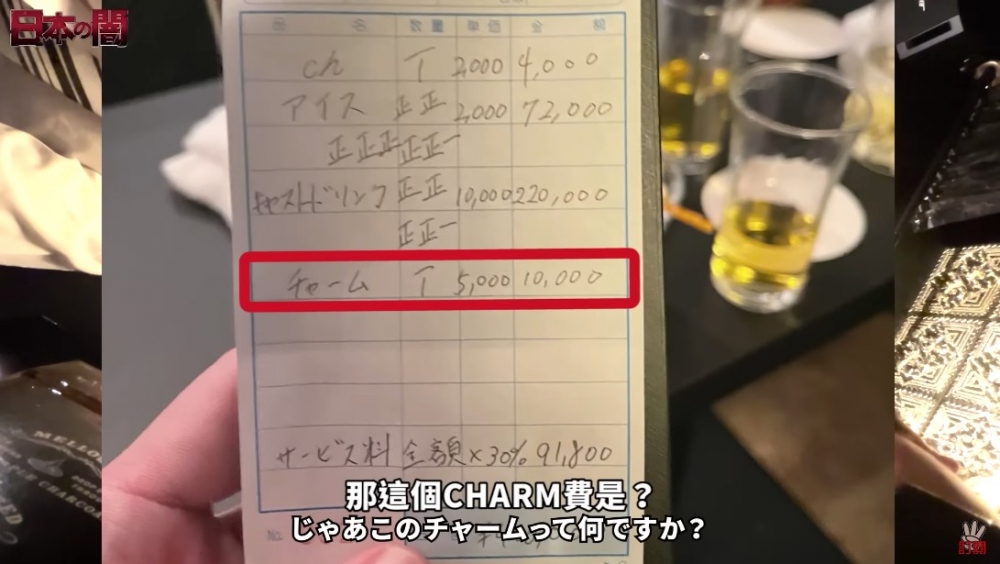 日本の闇
品 名 数量 単価 金 額
ch 丅 2,000 4,000
アイス 正正 2,000 72,000
正正正正正一
キャストドリンク 正正 10,000 220,000
正正一
チャーム 丅 5,000 10,000
サービス料 全額×30% 91,800
那這個CHARM費是？
じゃあこのチャームって何ですか？
No.
MELLOW
CHARCOA
訂閱